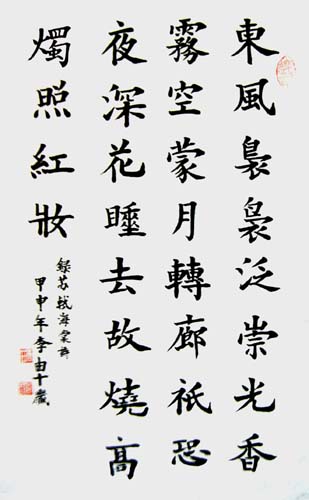 東風裊裊泛崇光香
霧空蒙月轉廊祇恐
夜深花睡去故燒高
燭照紅妝
錄苏軾海棠詩
甲申年李由十歲